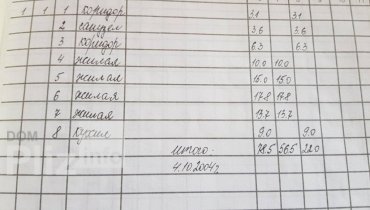 1 1 1 коридор 3.1 3.1
2 санузел 3.6 3.6
3 коридор 6.3 6.3
4 жилая 10.0 10.0
5 жилая 15.0 15.0
6 жилая 17.8 17.8
7 жилая 13.7 13.7
8 кухня 9.0 9.0
итого- 78.5 56.5 22.0
4.10.2004г
DOM